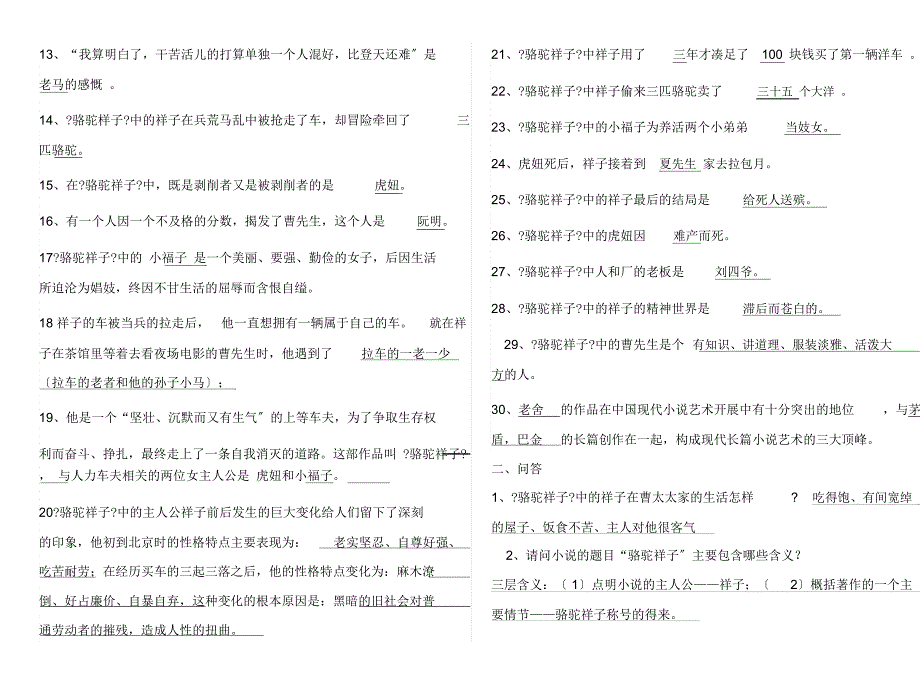 13、“我算明白了，干苦活儿的打算单独一个人混好，比登天还难〞是
老马的感慨 。
14、?骆驼样子?中的祥子在兵荒马乱中被抢走了车，却冒险牵回了 三
匹骆驼。
15、在?骆驼祥子?中，既是剥削者又是被剥削者的是 虎妞。
16、有一个人因一个不及格的分数，揭发了曹先生，这个人是 阮明。
17?骆驼祥子?中的 小福子 是一个美丽、要强、勤俭的女子，后因生活
所迫沦为娼妓，终因不甘生活的屈辱而含恨自缢。
18 祥子的车被当兵的拉走后， 他一直想拥有一辆属于自己的车。 就在祥
子在茶馆里等着去看夜场电影的曹先生时，他遇到了 拉车的一老一少
〔拉车的老者和他的孙子小马〕；
19、他是一个“坚壮、沉默而又有生气〞的上等车夫，为了争取生存权
利而奋斗、挣扎，最终走上了一条自我消灭的道路。这部作品叫 ?骆驼祥子?
， 与人力车夫相关的两位女主人公是 虎妞和小福子。
20?骆驼祥子?中的主人公祥子前后发生的巨大变化给人们留下了深刻
的印象，他初到北京时的性格特点主要表现为： 老实坚忍、自尊好强、
吃苦耐劳；在经历买车的三起三落之后，他的性格特点变化为：麻木潦
倒、好占廉价、自暴自弃，这种变化的根本原因是：黑暗的旧社会对普
通劳动者的摧残，造成人性的扭曲。
21、?骆驼祥子?中祥子用了 三年才凑足了 100 块钱买了第一辆洋车 。
22、?骆驼祥子?中祥子偷来三匹骆驼卖了 三十五 个大洋 。
23、?骆驼祥子?中的小福子为养活两个小弟弟 当妓女。
24、虎妞死后，祥子接着到 夏先生 家去拉包月。
25、?骆驼祥子?中的祥子最后的结局是 给死人送殡。
26、?骆驼祥子?中的虎妞因 难产而死。
27、?骆驼祥子?中人和厂的老板是 刘四爷。
28、?骆驼祥子?中的祥子的精神世界是 滞后而苍白的。
29、?骆驼祥子?中的曹先生是个 有知识、讲道理、服装淡雅、活泼大
方的人。
30、老舍 的作品在中国现代小说艺术开展中有十分突出的地位 ，与茅
盾，巴金 的长篇创作在一起，构成现代长篇小说艺术的三大顶峰。
二、问答
1、?骆驼祥子?中的祥子在曹太太家的生活怎样 ? 吃得饱、有间宽绰
的屋子、饭食不苦、主人对他很客气
2、请问小说的题目“骆驼祥子〞主要包含哪些含义？
三层含义：〔 1〕点明小说的主人公——祥子；〔 2〕概括著作的一个主
要情节——骆驼祥子称号的得来。